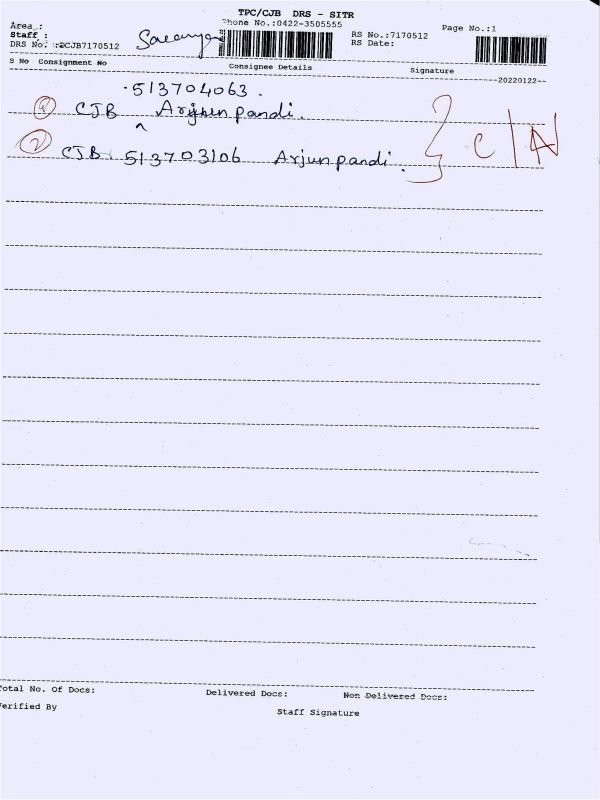 TPC/CJB DRS - SITR
Phone No.:0422-3505555
Page No.:1
Area.:
Staff :
RS No.:7170512
DRS No.: CJB7170512
RS Date:
S No Consignment No Consignee Details Signature
20220122
513704063.
1 CJB ^ Arjun pandi.
2 CJB. 513703106 Arjun pandi.
} C/A
Total No. Of Docs: Delivered Docs: Non Delivered Docs:
Verified By Staff Signature